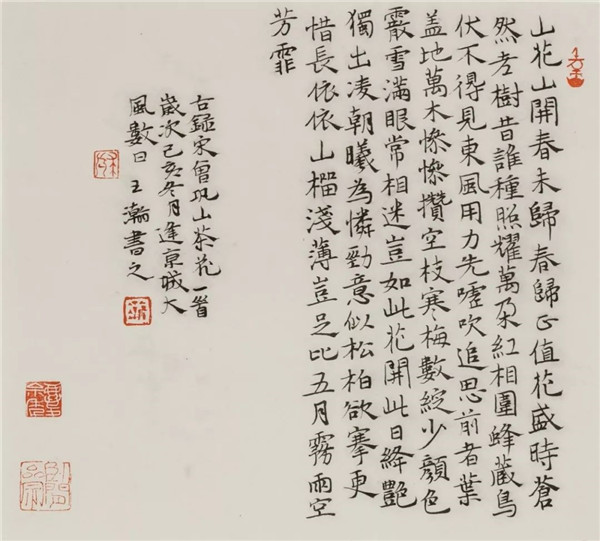 山花山開春未歸春歸正值花盛時蒼
然老樹昔誰種照耀萬朵紅相圍蜂藏鳥
伏不得見東風用力先噓吹追思前者葉
盖地萬木慘慘攢空枝寒梅數綻少顏色
霰雪滿眼常相迷豈如此花開此日絳艷
獨出凌朝曦為憐勁意似松柏欲搴更
惜長依依山榴淺薄豈足比五月霧雨空
芳霏
右錄宋曾巩山茶花一首
歲次己亥冬月逢京城大
風數日 王瀚書之